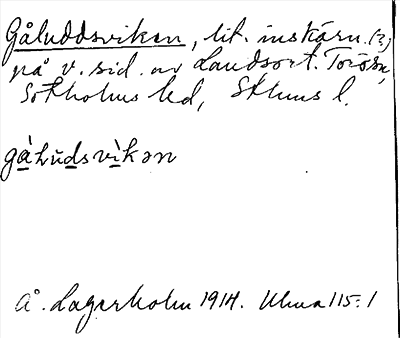 Gåluddsviken, lit. inskärn. (?)
på v. sid. av Landsort. Torö sn,
Sotholms hd, Sthms l.
gàLùdsvìkən
Å. Lagerholm 1914. Ulma 115:1